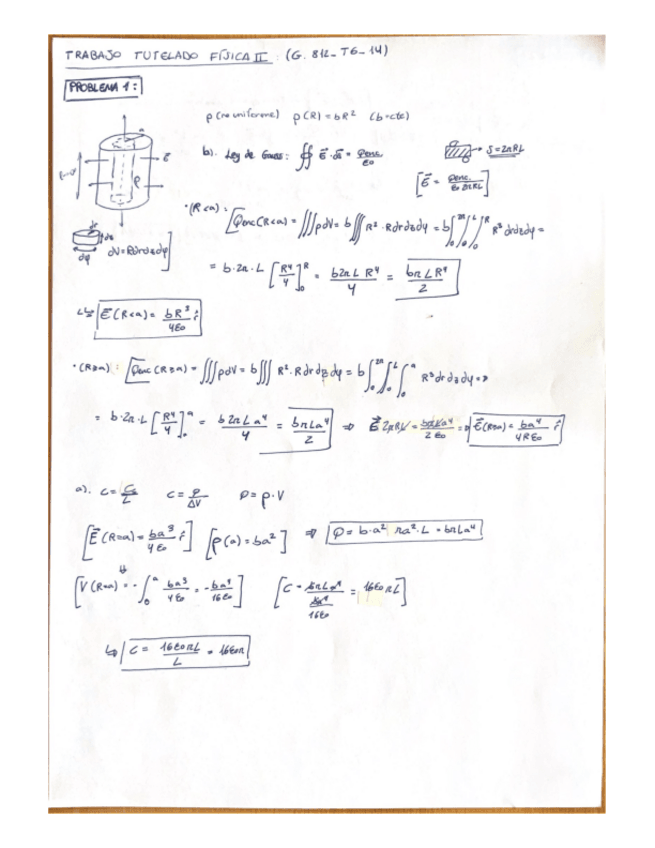 TRABAJO TUTELADO FÍSICA II : (G. 812_T6_14)
PROBLEMA 1:
ρ (no uniforme) ρ(R) = bR² (b=cte)
b). Ley de Gauss: ∯ E⃗·ds⃗ = Qenc/ε0
S = 2πRL
[E⃗ = Qenc./ε0 2πRL]
a
E⃗
ρ
dr
dz
dφ
dV = R dr dz dφ]
·(R<a) : [Qenc (R<a) = ∭ρdV = b∭ R²·R dr dz dφ = b∫₀^2π ∫₀^L ∫₀^R R³ dr dz dφ =
= b·2π·L [R⁴/4]₀^R = b2πL R⁴/4 = bπL R⁴/2
↳ E⃗(R<a) = bR³/4ε0 r̂
·(R≥a) : [Qenc (R≥a) = ∭ρdV = b∭ R²·R dr dz dφ = b∫₀^2π ∫₀^L ∫₀^a R³ dr dz dφ =>
= b·2π·L [R⁴/4]₀^a = b2πL a⁴/4 = bπLa⁴/2 ⇒ E⃗ 2πRL = bπLa⁴/2ε0 => E⃗(R≥a) = ba⁴/4Rε0 r̂
a). C = /L C = Q/ΔV Q = ρ·V
[E⃗(R=a) = ba³/4ε0 r̂] [ρ(a) = ba²] ⇒ Q = b·a² πa²·L = bπLa⁴
⇓
[V(R=a) = -∫₀^a ba³/4ε0 = -ba⁴/16ε0] [C = bπLa⁴/(ba⁴/16ε0) = 16ε0πL]
↳ C = 16ε0πL/L = 16ε0π